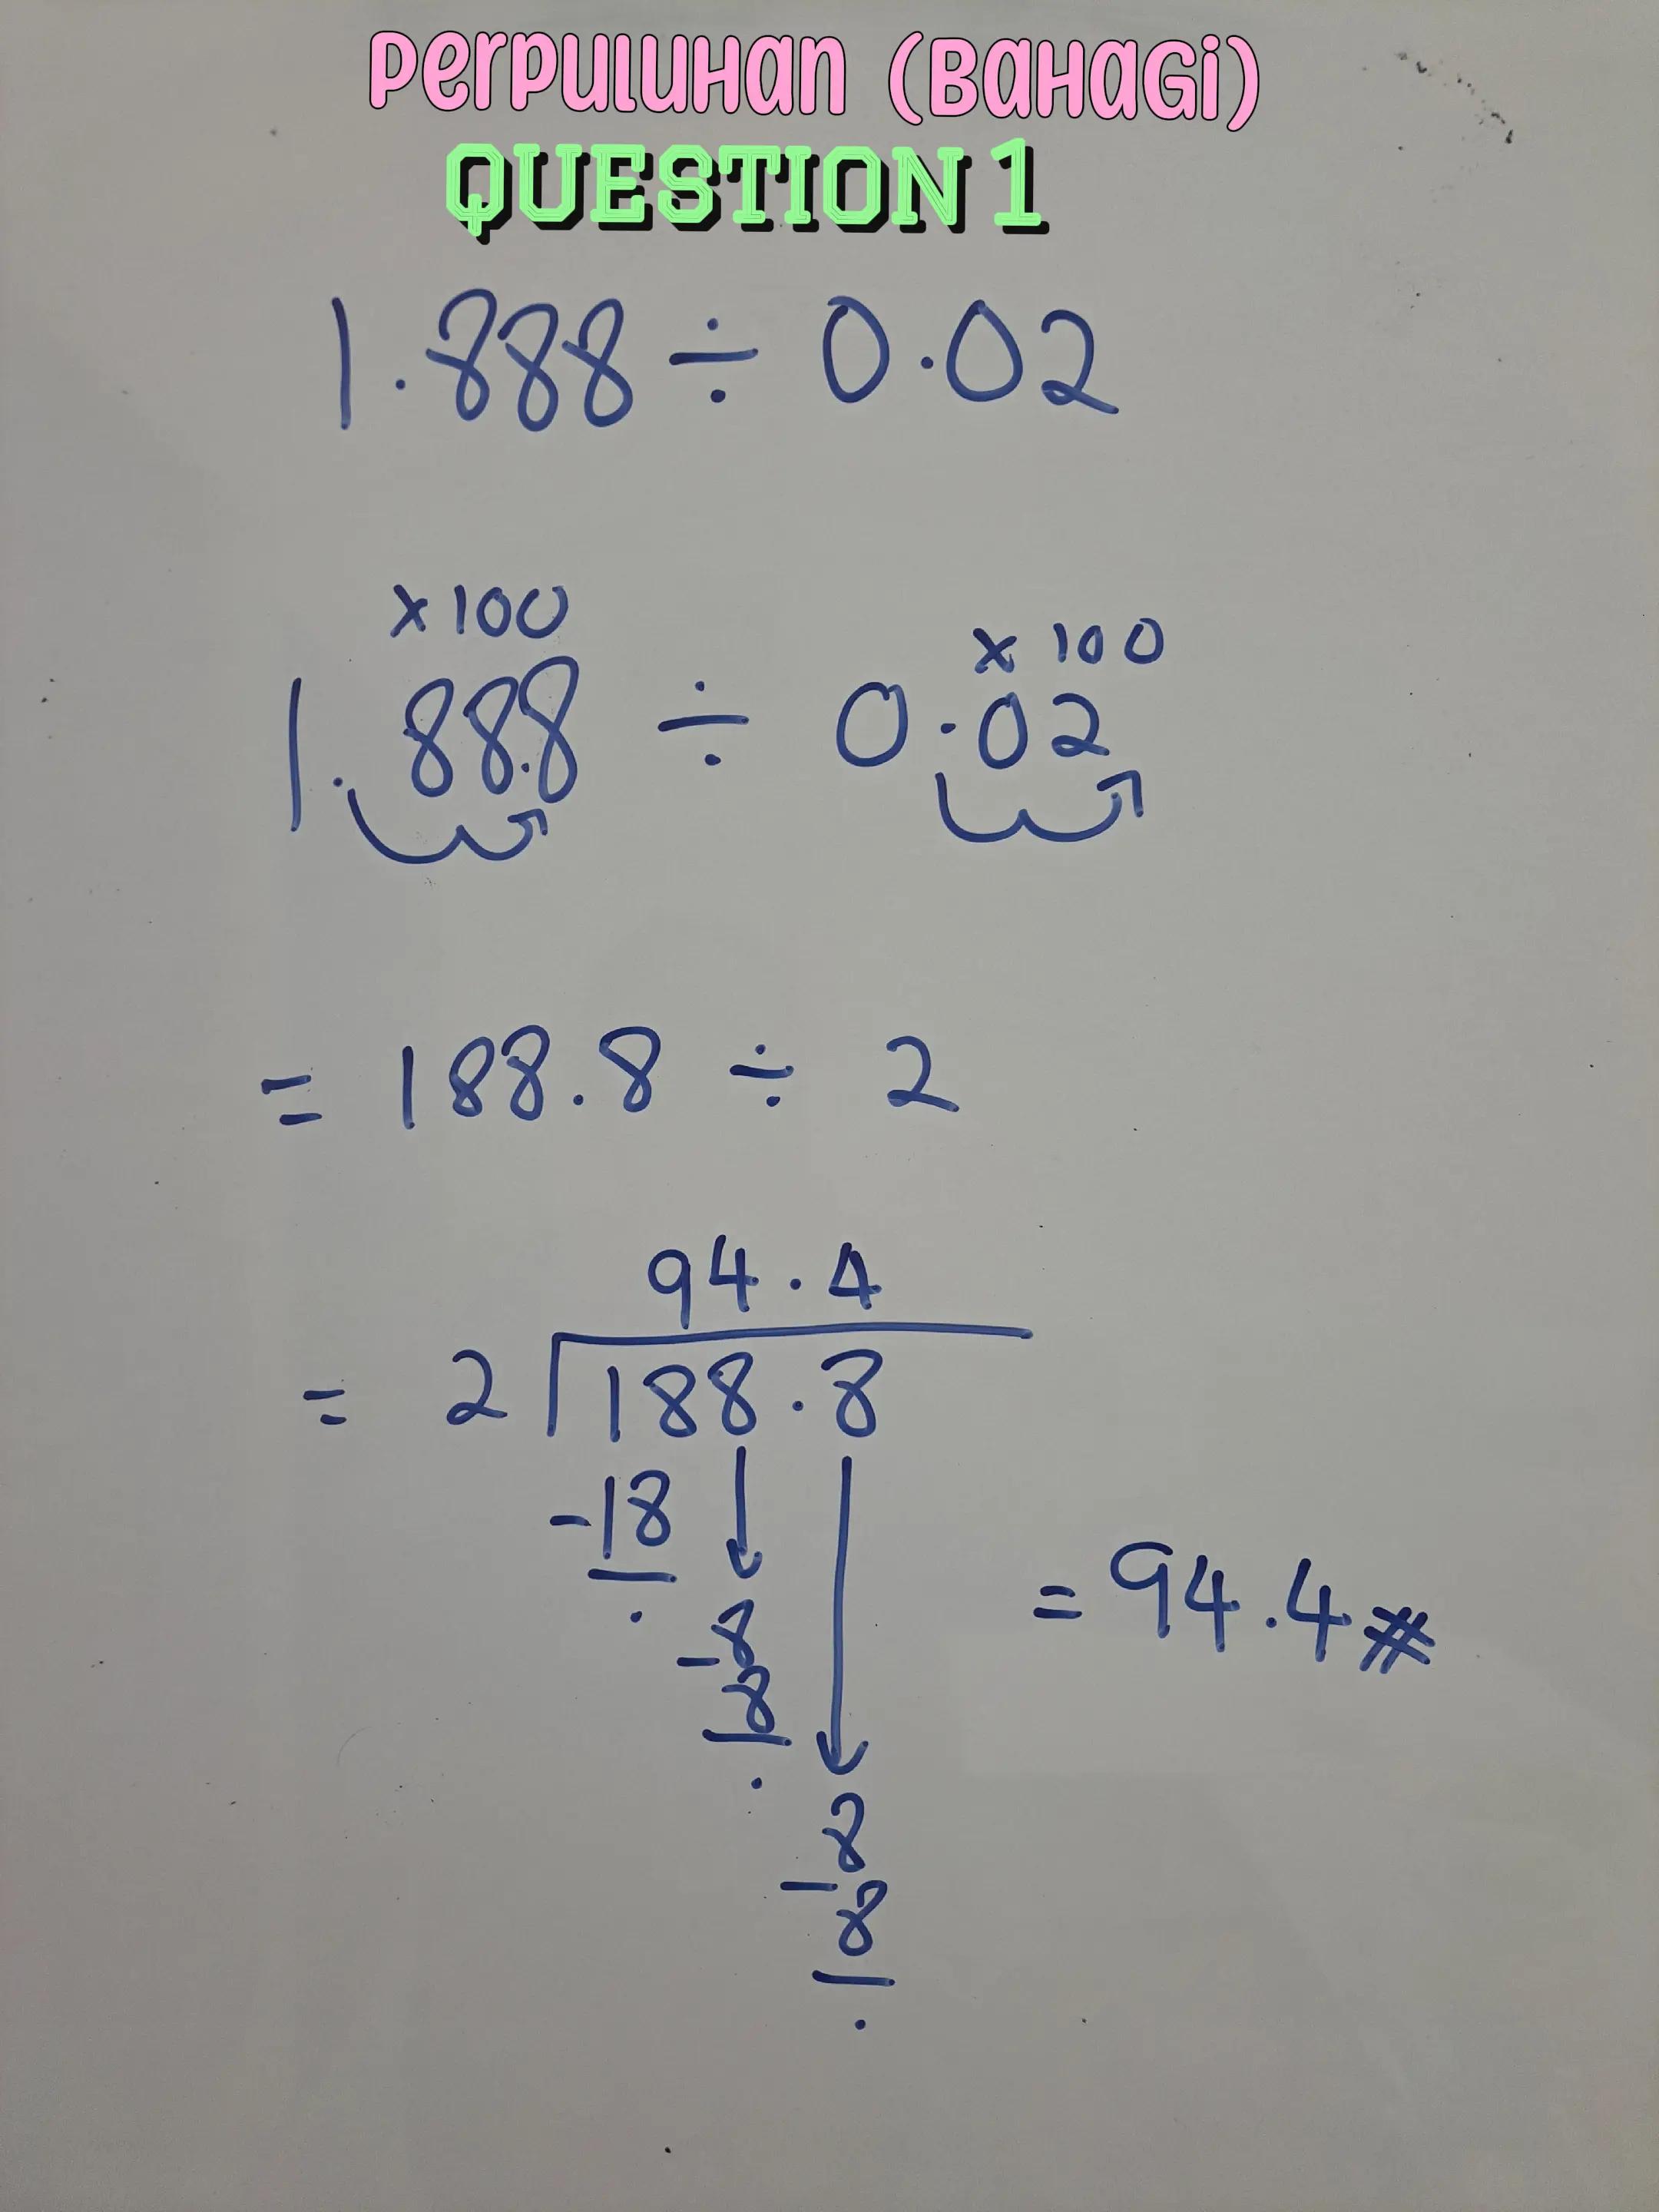 Perpuluhan (Bahagi)
QUESTION 1
1.888 ÷ 0.02
x100
x 100
1.88.8 ÷ 0.02
= 188.8 ÷ 2
94.4
= 2 188.8
-18
. 8
- 8
. 8
- 8
.
= 94.4#